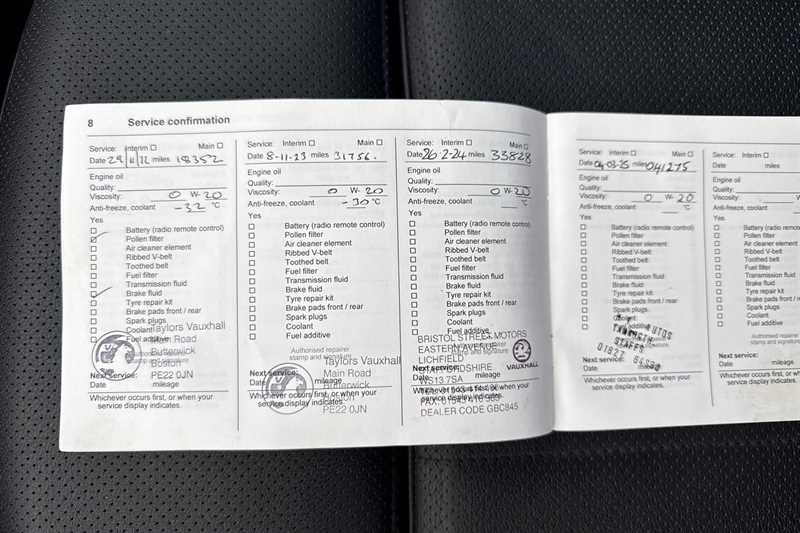 8 Service confirmation
Service: Interim Main
Date 29 11 22 miles 18352
Engine oil
Quality:
Viscosity: 0 W- 20
Anti-freeze, coolant -32 °C
Yes
Battery (radio remote control)
Pollen filter
Air cleaner element
Ribbed V-belt
Toothed belt
Fuel filter
Transmission fluid
Brake fluid
Tyre repair kit
Brake pads front / rear
Spark plugs
Coolant
Fuel additive
Taylors Vauxhall
Main Road
Butterwick
Boston
PE22 0JN
stamp and signature
Next service:
Date mileage
Whichever occurs first, or when your
service display indicates.
Service: Interim Main
Date 8-11-23 miles 31756.
Engine oil
Quality:
Viscosity: 0 W- 20
Anti-freeze, coolant -30 °C
Yes
Battery (radio remote control)
Pollen filter
Air cleaner element
Ribbed V-belt
Toothed belt
Fuel filter
Transmission fluid
Brake fluid
Tyre repair kit
Brake pads front / rear
Spark plugs
Coolant
Fuel additive
Authorised repairer
stamp and signature
Taylors Vauxhall
Main Road
Butterwick
Boston
PE22 0JN
Next service:
Date mileage
Whichever occurs first, or when your
service display indicates.
Service: Interim Main
Date 26-2-24 miles 33828
Engine oil
Quality:
Viscosity: 0 W- 20
Anti-freeze, coolant °C
Yes
Battery (radio remote control)
Pollen filter
Air cleaner element
Ribbed V-belt
Toothed belt
Fuel filter
Transmission fluid
Brake fluid
Tyre repair kit
Brake pads front / rear
Spark plugs
Coolant
Fuel additive
BRISTOL STREET MOTORS
EASTERN AVENUE
LICHFIELD
STAFFORDSHIRE
WS13 7SA
DEALER CODE GBC845
VAUXHALL
stamp and signature
Next service:
Date mileage
Whichever occurs first, or when your
service display indicates.
Service: Interim Main
Date 04-03-25 miles 041275
Engine oil
Quality:
Viscosity: 0 W- 20
Anti-freeze, coolant °C
Yes
Battery (radio remote control)
Pollen filter
Air cleaner element
Ribbed V-belt
Toothed belt
Fuel filter
Transmission fluid
Brake fluid
Tyre repair kit
Brake pads front / rear
Spark plugs
Coolant
Fuel additive
AUTOS
TAMWORTH
STAFFS
01827
Next service:
Date mileage
Whichever occurs first, or when your
service display indicates.
Service: Interim
Date miles
Engine oil
Quality:
Viscosity:
Anti-freeze, coolant
Yes
Battery (radio rem
Pollen filter
Air cleaner eleme
Ribbed V-belt
Toothed belt
Fuel filter
Transmission flui
Brake fluid
Tyre repair kit
Brake pads front
Spark plugs
Coolant
Fuel additive
Authorised
stamp and s
Next service:
Date
Whichever occurs first, or
service display indicate